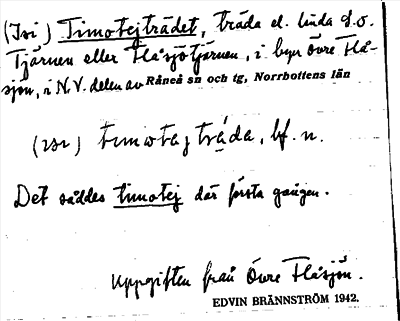 (Isi) Timotejträdet, träda el. linda s.o.
Tjärnen eller Flåsjötjärnen, i byn Övre Flå-
sjön, i N.V. delen av Råneå sn och tg, Norrbottens län
timotaj träda, bf. n.
Det såddes timotej där första gången.
Uppgiften från Övre Flåsjön.
EDVIN BRÄNNSTRÖM 1942.